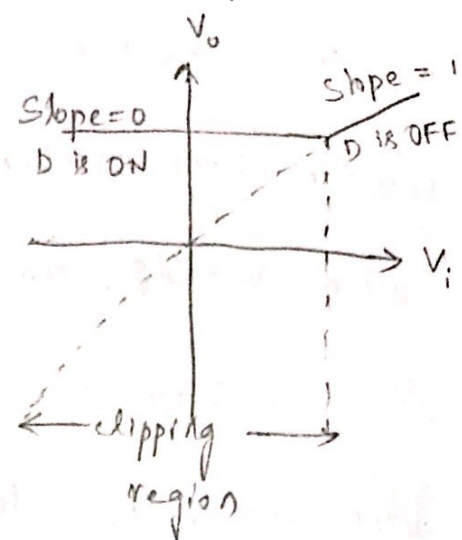 V₀
Slope = 1
Slope=0
D is OFF
D is ON
Vᵢ
clipping
region